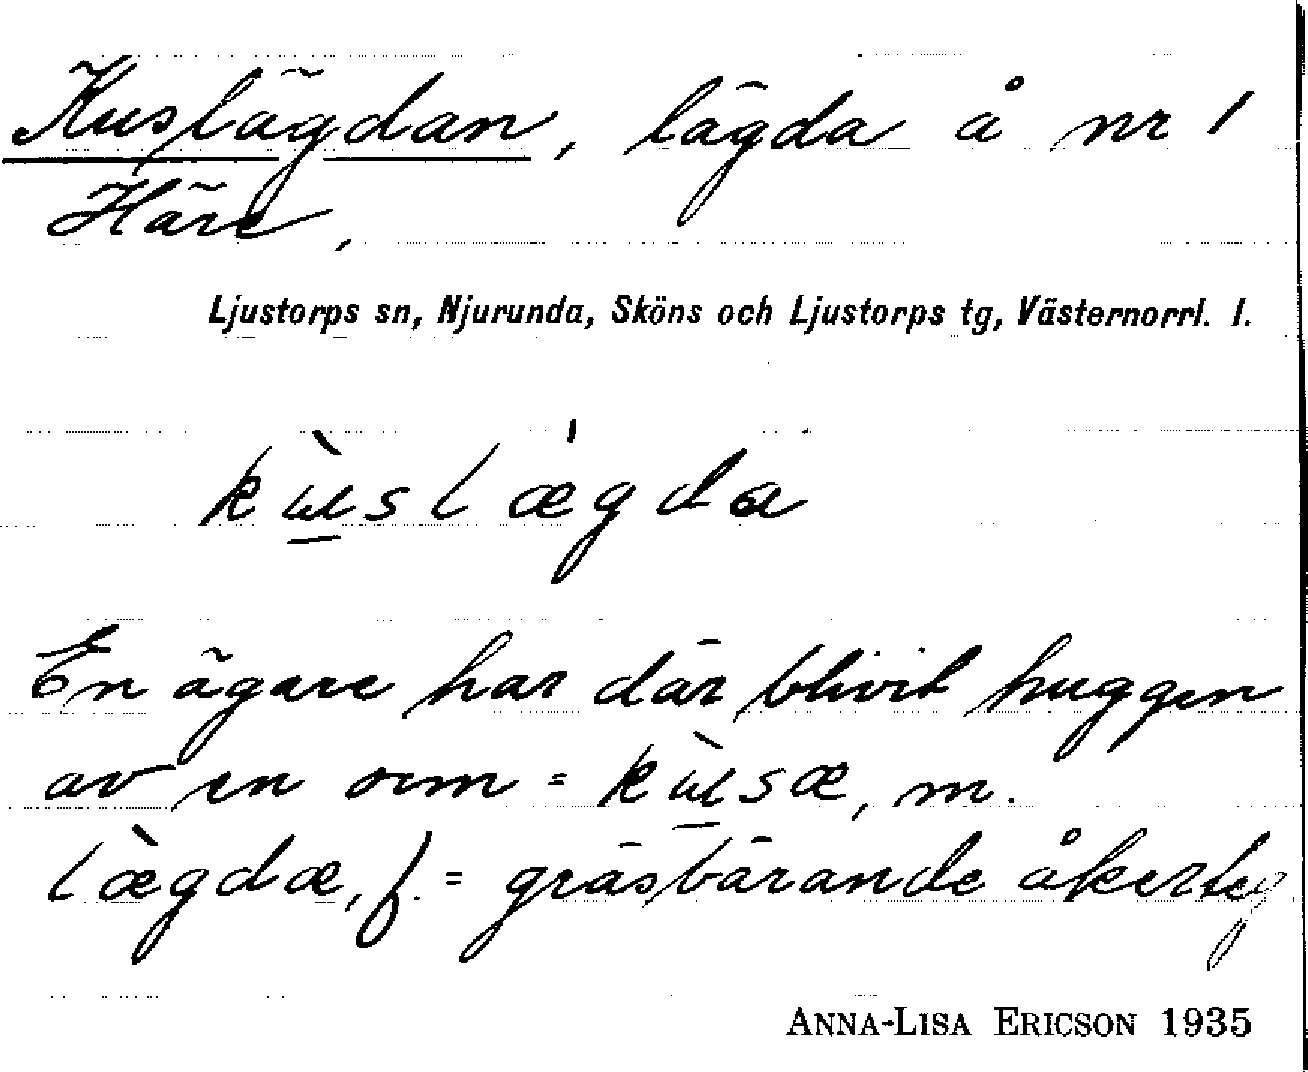 Kuslägdan, lägda å nr 1
Häre,
Ljustorps sn, Njurunda, Sköns och Ljustorps tg, Västernorrl. l.
kùslǽgda
En ägare har där blivit huggen
av en orm = kùsæ, m.
lægdæ, f. = gräsbärande åkerteg
ANNA-LISA ERICSON 1935